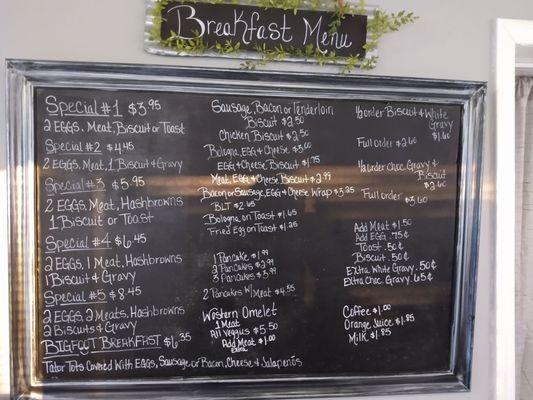 Breakfast Menu
Special #1 $3.95
2 Eggs, Meat, Biscuit or Toast
Special #2 $4.45
2 Eggs, Meat, 1 Biscuit & Gravy
Special #3 $5.95
2 Eggs, Meat, Hashbrowns
1 Biscuit or Toast
Special #4 $6.45
2 Eggs, 1 Meat, Hashbrowns
1 Biscuit & Gravy
Special #5 $8.45
2 Eggs, 2 Meats, Hashbrowns
2 Biscuits & Gravy
BIGFOOT BREAKFAST $6.35
Tator Tots Covered With Eggs, Sausage or Bacon, Cheese & Jalapeños
Sausage, Bacon or Tenderloin
Biscuit $2.50
Chicken Biscuit $2.50
Bologna, Egg & Cheese $3.00
Egg & Cheese Biscuit $1.75
Meat, Egg & Cheese Biscuit $2.99
Bacon or Sausage, Egg & Cheese Wrap $3.25
BLT $2.65
Bologna on Toast $1.65
Fried Egg on Toast $1.25
1 Pancake $1.99
2 Pancakes $2.99
3 Pancakes $3.99
2 Pancakes W/ Meat $4.35
Western Omelet
1 Meat
All Veggies $5.50
Add Meat $1.00
Extra
½ order Biscuit & White
Gravy
$1.60
Full order $2.60
½ order Choc. Gravy &
Biscuit
$2.60
Full order $3.60
Add Meat $1.50
Add Egg .75¢
Toast .50¢
Biscuit .50¢
Extra White Gravy .50¢
Extra Choc. Gravy .65¢
Coffee $1.00
Orange Juice $1.85
Milk $1.85